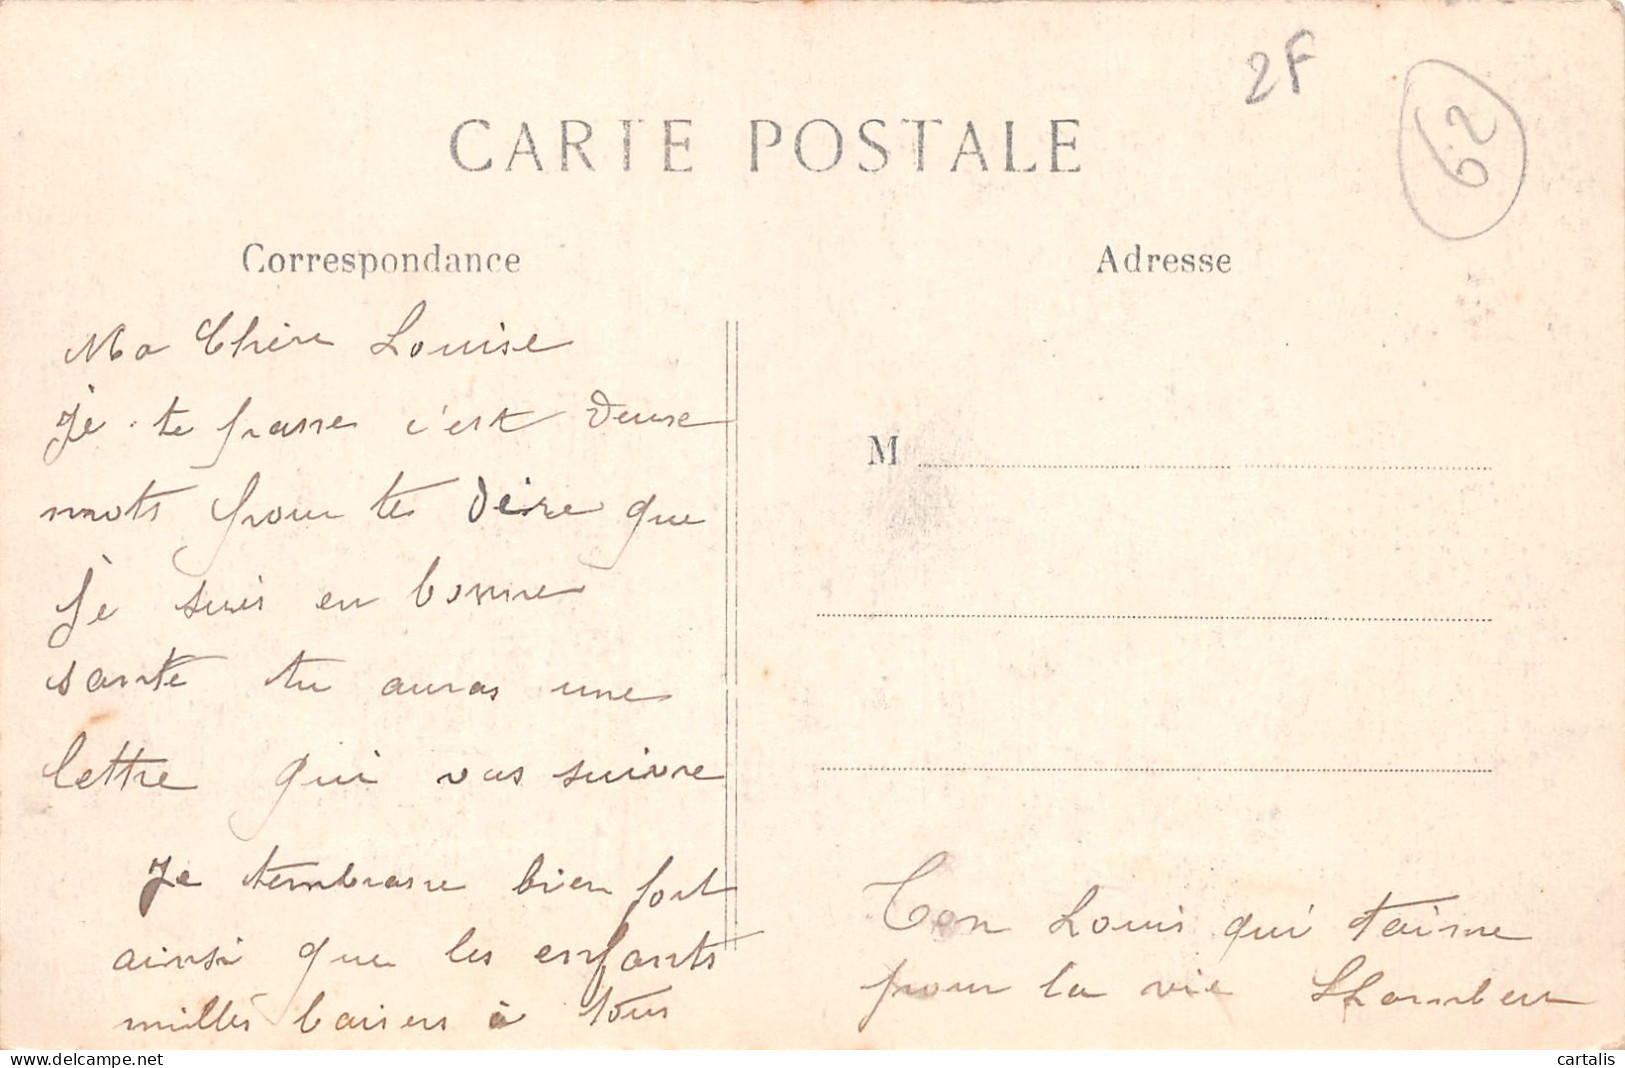 2F
62
CARTE POSTALE
Correspondance
Adresse
Ma Chère Louise
Je te passe c'est deuse
mots pour te deire que
Je suis en bonne
sante tu auras une
lettre qui vas suivre
Je tembrasse bien fort
ainsi que les enfants
milles baisers à tous
M
Ton Louis qui t'aime
pour la vie
cartalis